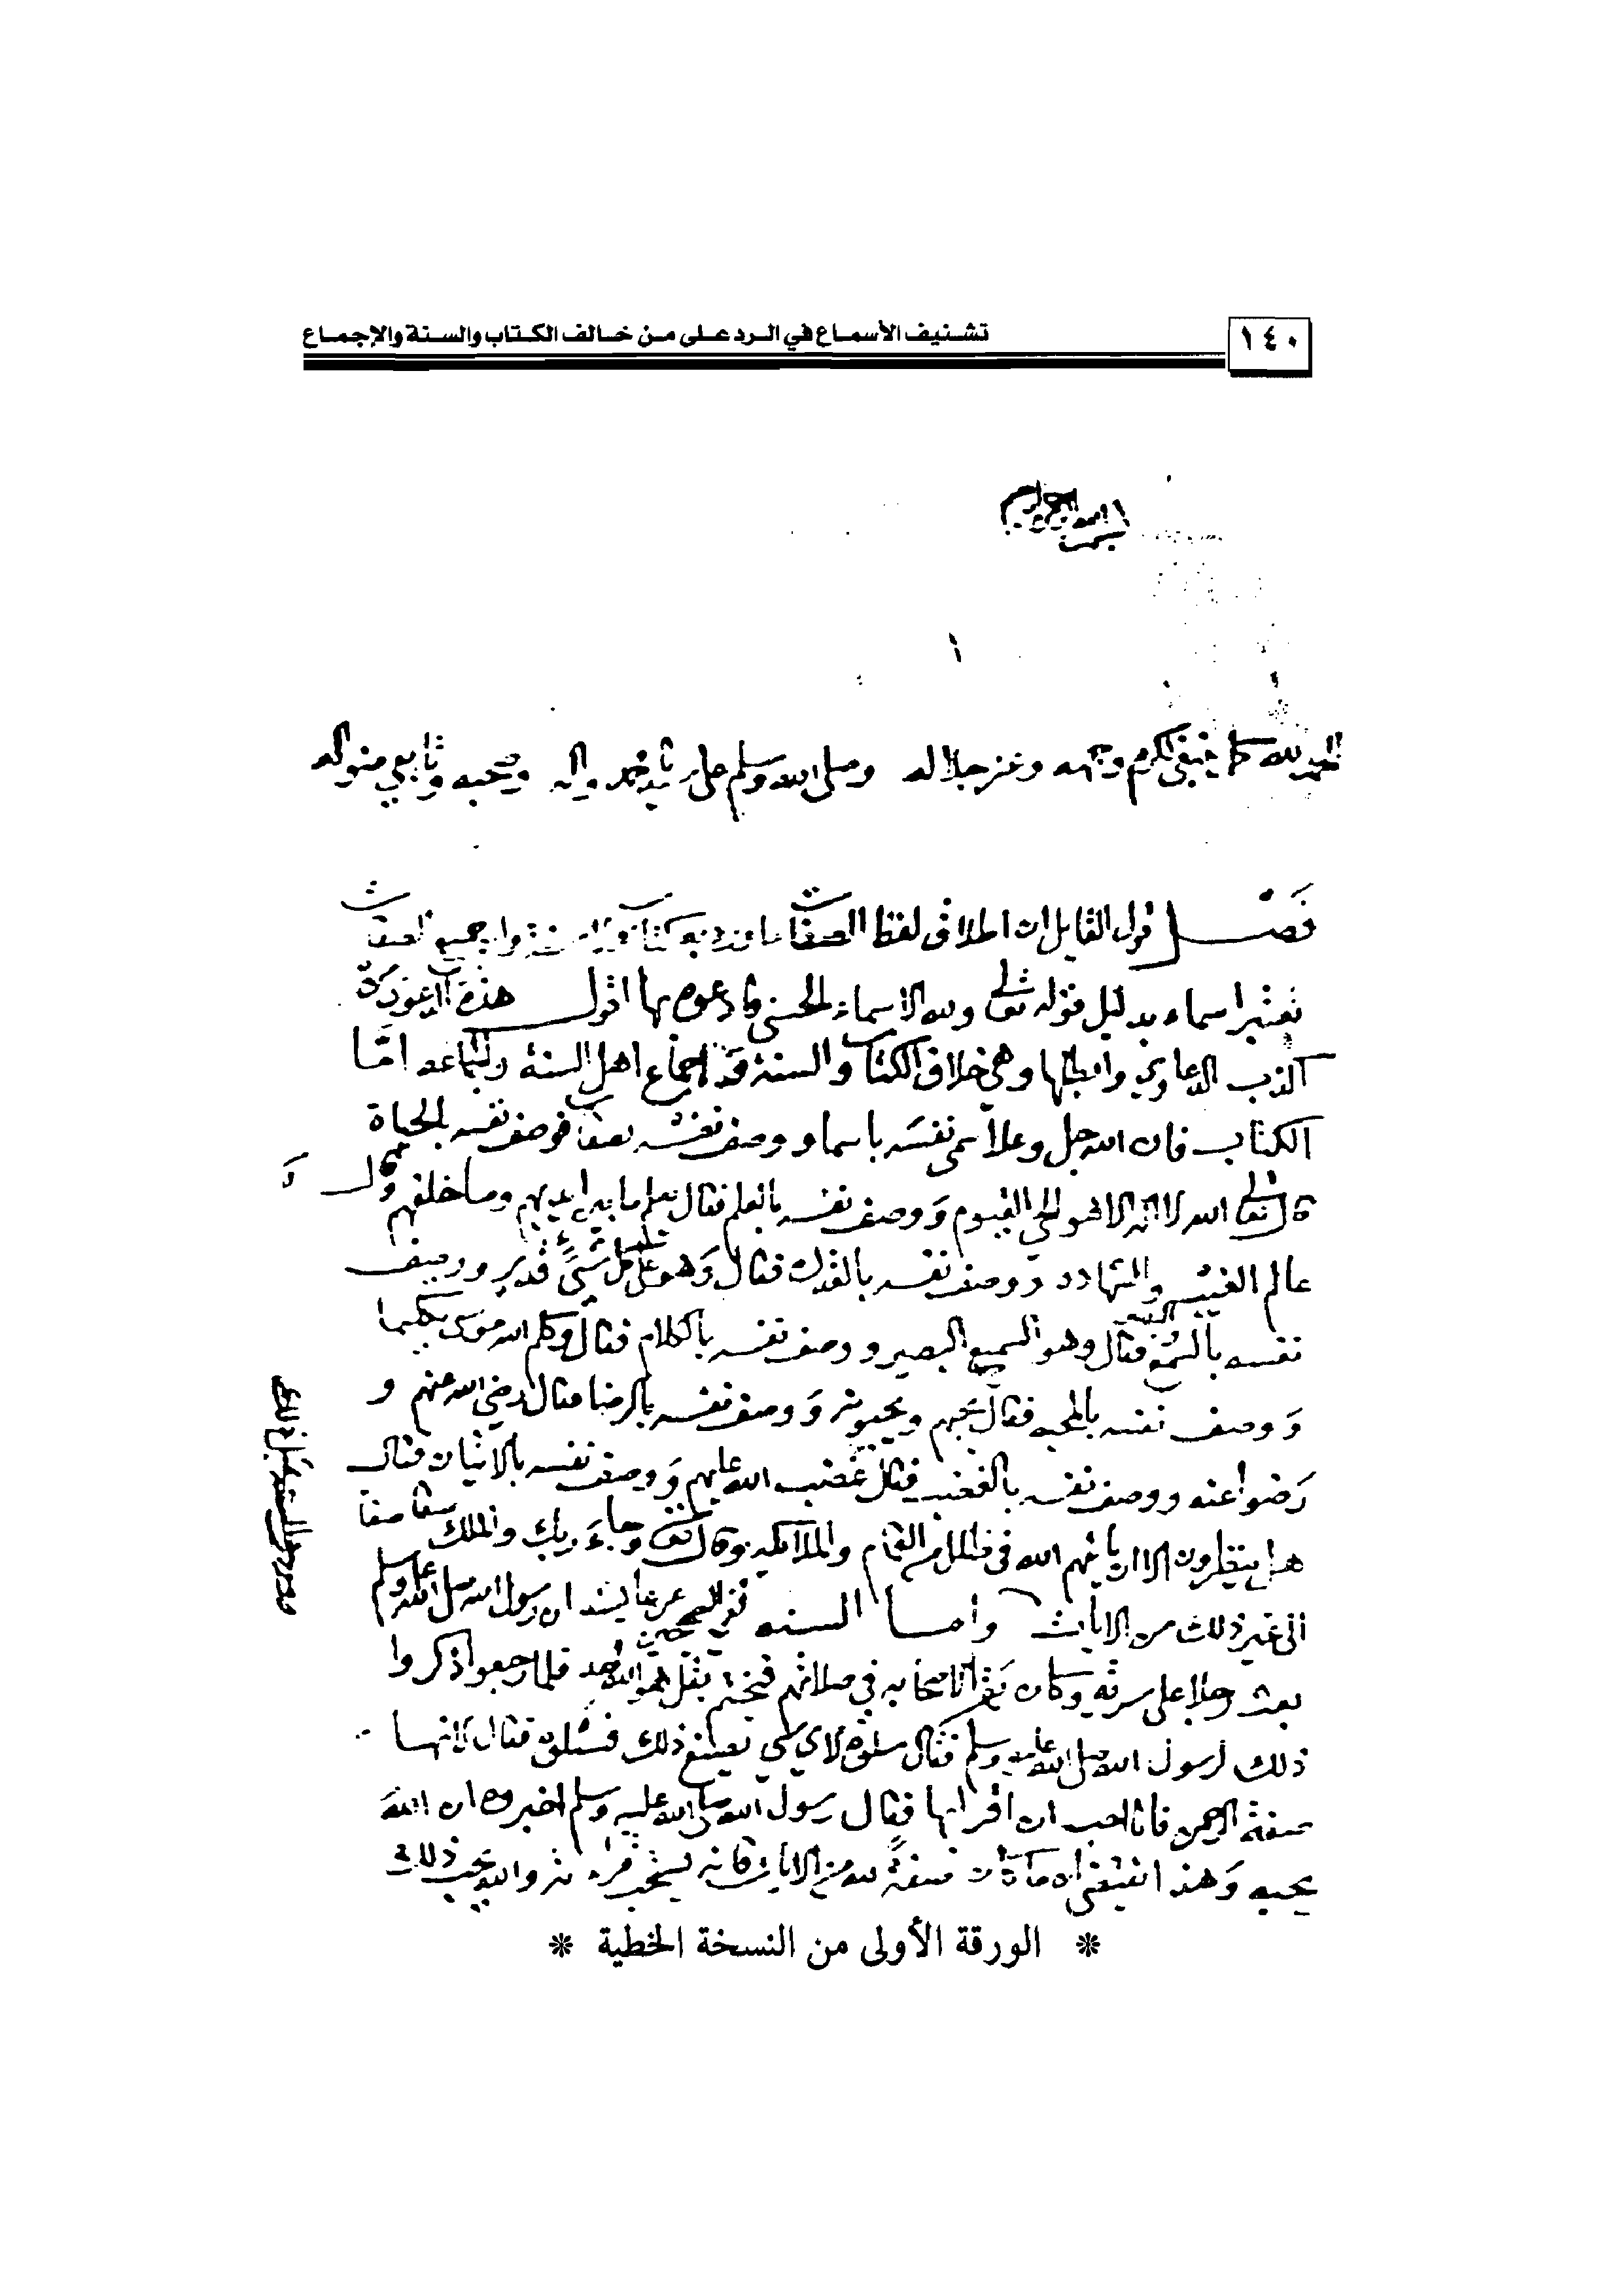 ١٤٠
تشنيف الأسماع في الرد على من خالف الكتاب والسنة والإجماع
بسم الله الرحمن الرحيم
الحمد لله كما ينبغي لكرم وجهه وعز جلاله وصلى الله وسلم على محمد واله وصحبه
فصل قول القايل ان اطلاق لفظ الصفات لم يرد به كتاب ولا سنة وان جميع الصفات
تعتبر اسماء بدليل قوله تعالى ولله الاسماء الحسنى فادعوه بها اقول هذه
اكذب الدعاوي وابطلها وهي خلاف الكتاب والسنة واجماع اهل السنة والجماعه امّا
الكتاب فان الله جل وعلا سمى نفسَه باسماء ووصف نفسه بصفات فوصف نفسه بالحياة
قال تعالى الله لا اله الا هو الحي القيوم وَوصف نفسه بالعلم فقال يعلم ما بين ايديهم وما خلفهم وقال
عالم الغيب والشهاده ووصف نفسه بالقدرة فقال وَهو على كل شيء قدير ووصف
نفسه بالسمع والبصر فقال وهو السميع البصير ووصف نفسه بالكلام فقال وكلم الله موسى تكليما
وَوصف نفسه بالمحبه فقال يحبهم ويحبونه وَوصف نفسه بالرضا فقال رضي الله عنهم و
رَضوا عنه ووصف نفسه بالغضب فقال غضب الله عليهم وَوصف نفسه بالاتيان فقال
هل ينظرون الا ان ياتيهم الله في ظلل من الغمام والملائكه وقال تعالى وجاءَ ربك والملك صفا صفا
الى غير ذلك من الايات واما السنه ففي الصحيحين عن عايشة ان رسول الله صلى الله عليه وسلم
بعث رجلا على سريه وكان يقرأ لاصحابه في صلاتهم فيختم بقل هو الله احد فلما رجعوا ذكروا
ذلك لرسول الله صلى الله عليه وسلم فقال سلوه لاي شي يصنع ذلك فسئلوه فقال لانها
صفة الرحمن فانا احب ان اقرأ بها فقال رسول الله صلى الله عليه وسلم اخبروه ان اللهَ
يحبه وَهذا يقتضي ان ما كان صفةً لله من الايات فانه يستحب قراءته والله يحب ذلك
* الورقة الأولى من النسخة الخطية *